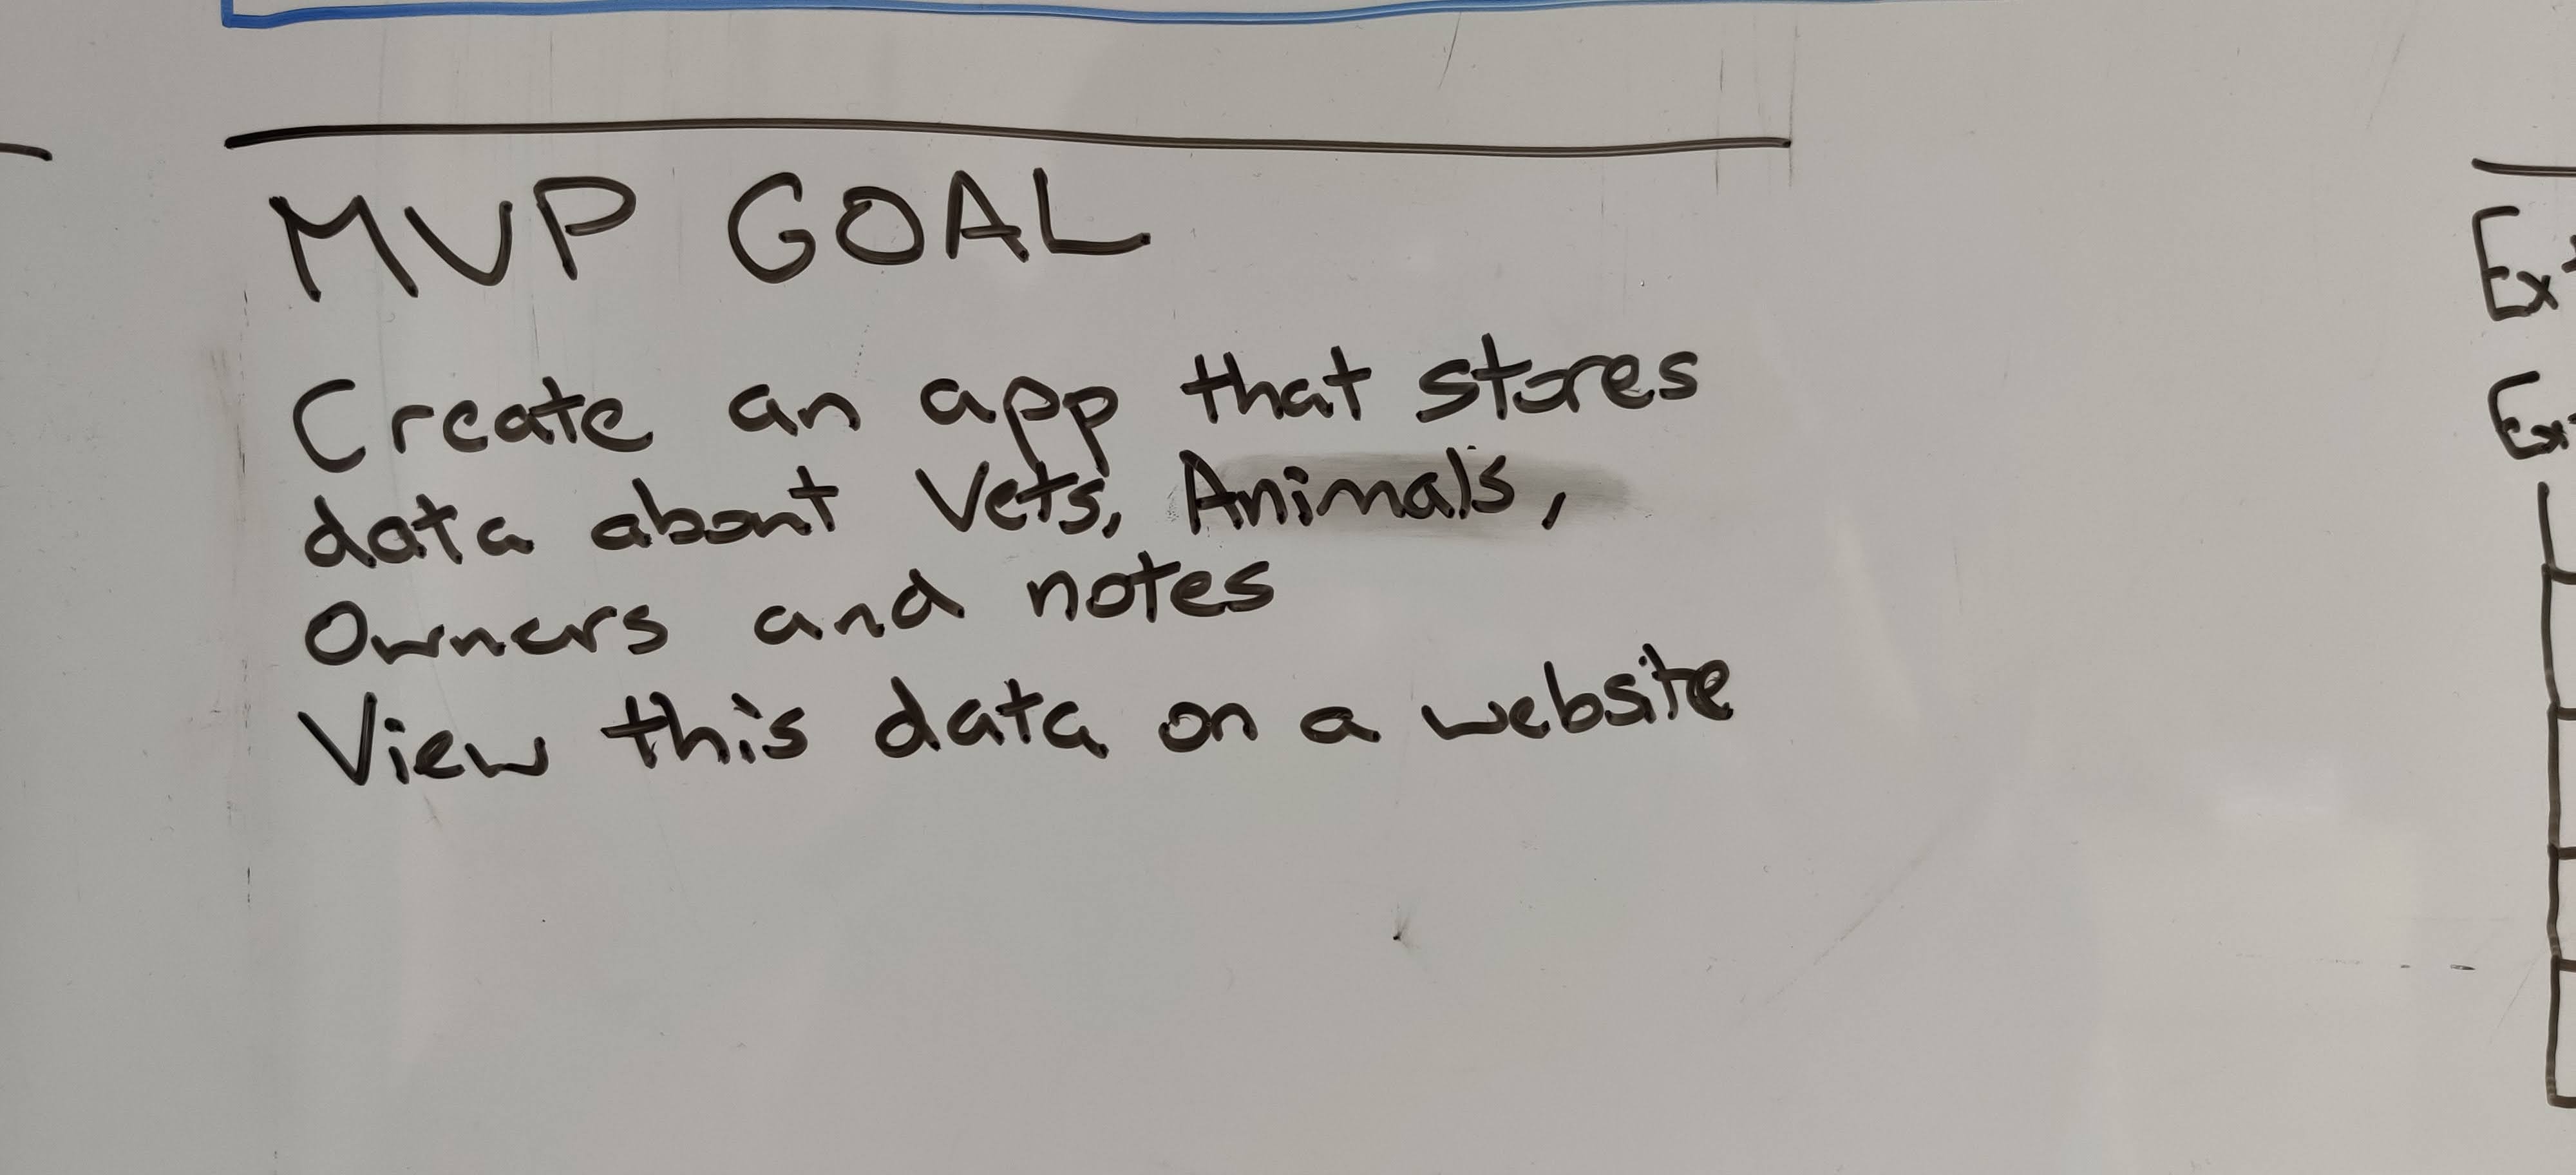 MVP GOAL
Create an app that stores
data about Vets, Animals,
Owners and notes
View this data on a website